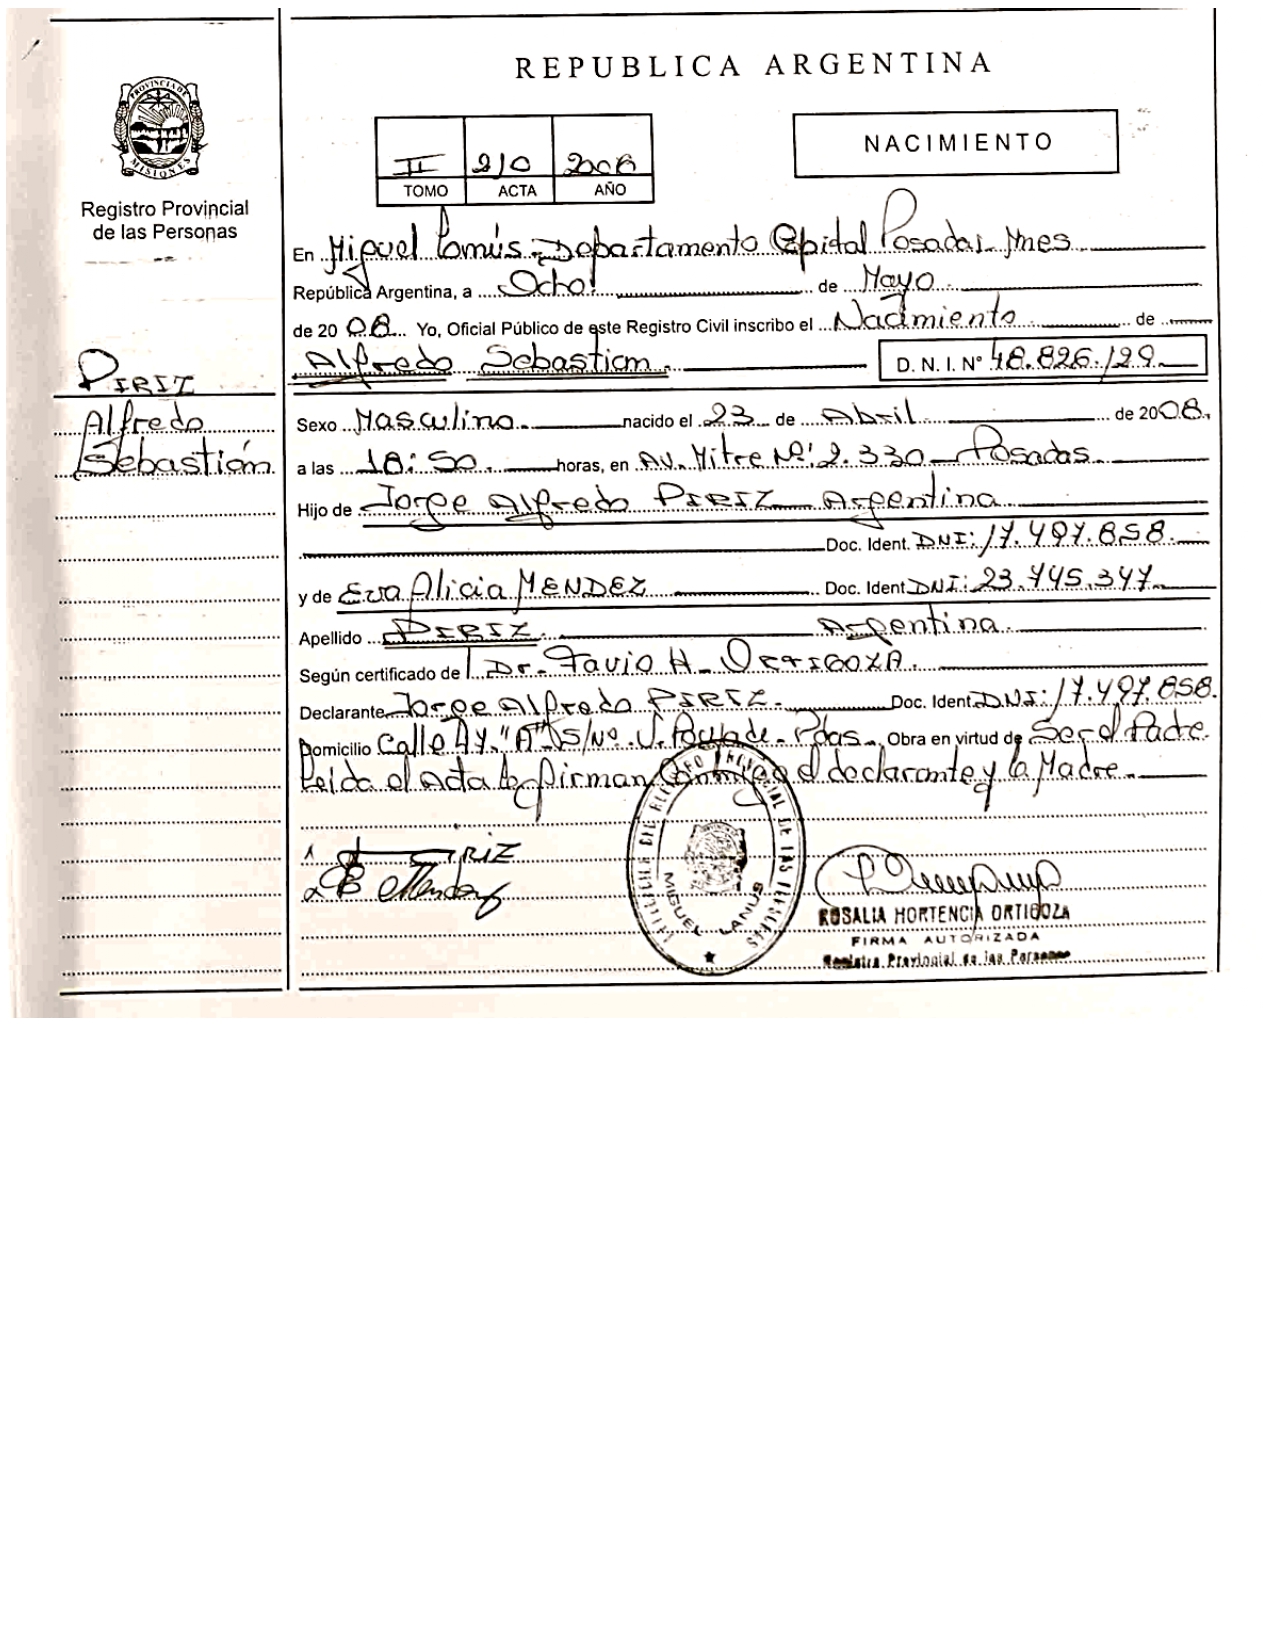 REPUBLICA ARGENTINA
PROVINCIA DE MISIONES
Registro Provincial
de las Personas
NACIMIENTO
II 210 2008
TOMO ACTA AÑO
En Miguel Lanús - Departamento Capital Posadas Mnes
República Argentina, a Ocho de Mayo
de 2008 Yo, Oficial Público de este Registro Civil inscribo el Nacimiento de
Alfredo Sebastian D. N. I. Nº 48.826.129
PIRIZ
Alfredo
Sebastián
Sexo Masculino nacido el 23 de Abril de 2008.
a las 18:50 horas, en Av. Mitre Nº: 2.330 - Posadas
Hijo de Jorge Alfredo PIRIZ Argentina
Doc. Ident. DNI: 17.497.858.
y de Eva Alicia MENDEZ Doc. Ident DNI: 23.445.347
Apellido PIRIZ. Argentina.
Según certificado de Dr. Favio H. ORTIGOZA.
Declarante Jorge Alfredo PIRIZ. Doc. Ident DNI: 17.497.858.
Domicilio Calle "A" S/Nº Pdas. Obra en virtud de Ser el Padre.
Leida el Acta la firman Conmigo el declarante y la Madre.
1 PIRIZ
2 Mendez
MIGUEL LANUS
ROSALIA HORTENCIA ORTIGOZA
FIRMA AUTORIZADA
Registro Provincial de las Personas